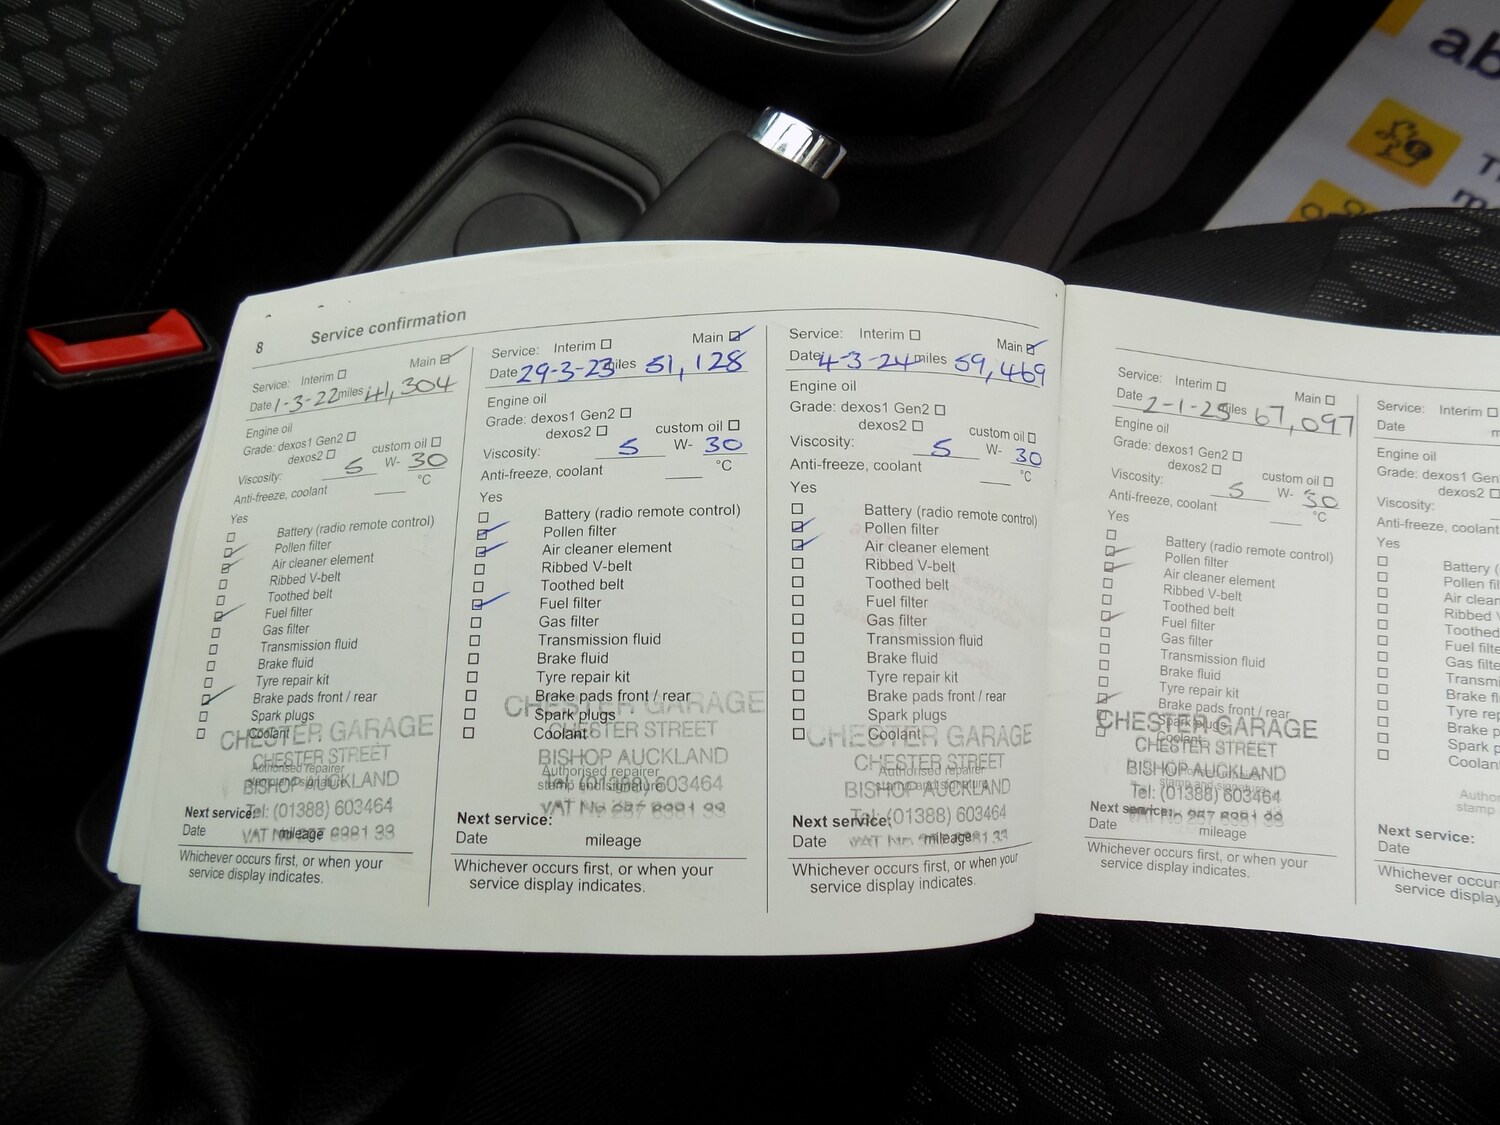 8 Service confirmation
Service: Interim Main
Date 1-3-22 miles 41,304
Engine oil
Grade: dexos1 Gen2
dexos2 custom oil
Viscosity: 5 W- 30
Anti-freeze, coolant °C
Yes
Battery (radio remote control)
Pollen filter
Air cleaner element
Ribbed V-belt
Toothed belt
Fuel filter
Gas filter
Transmission fluid
Brake fluid
Tyre repair kit
Brake pads front / rear
Spark plugs
Coolant
CHESTER GARAGE
CHESTER STREET
Authorised repairer
stamp and signature
BISHOP AUCKLAND
Tel: (01388) 603464
Next service:
Date mileage
Whichever occurs first, or when your
service display indicates.
Service: Interim Main
Date 29-3-23 miles 51,128
Engine oil
Grade: dexos1 Gen2
dexos2 custom oil
Viscosity: 5 W- 30
Anti-freeze, coolant °C
Yes
Battery (radio remote control)
Pollen filter
Air cleaner element
Ribbed V-belt
Toothed belt
Fuel filter
Gas filter
Transmission fluid
Brake fluid
Tyre repair kit
Brake pads front / rear
CHESTER GARAGE
Spark plugs
CHESTER STREET
Coolant
BISHOP AUCKLAND
Authorised repairer
stamp and signature
Tel: (01388) 603464
Next service:
Date mileage
Whichever occurs first, or when your
service display indicates.
Service: Interim Main
Date 4-3-24 miles 59,469
Engine oil
Grade: dexos1 Gen2
dexos2 custom oil
Viscosity: 5 W- 30
Anti-freeze, coolant °C
Yes
Battery (radio remote control)
Pollen filter
Air cleaner element
Ribbed V-belt
Toothed belt
Fuel filter
Gas filter
Transmission fluid
Brake fluid
Tyre repair kit
Brake pads front / rear
Spark plugs
Coolant
CHESTER GARAGE
CHESTER STREET
Authorised repairer
stamp and signature
BISHOP AUCKLAND
Tel: (01388) 603464
Next service:
Date mileage
Whichever occurs first, or when your
service display indicates.
Service: Interim Main
Date 2-1-25 miles 67,097
Engine oil
Grade: dexos1 Gen2
dexos2 custom oil
Viscosity: 5 W- 30
Anti-freeze, coolant °C
Yes
Battery (radio remote control)
Pollen filter
Air cleaner element
Ribbed V-belt
Toothed belt
Fuel filter
Gas filter
Transmission fluid
Brake fluid
Tyre repair kit
Brake pads front / rear
Spark plugs
CHESTER GARAGE
Coolant
CHESTER STREET
BISHOP AUCKLAND
stamp and signature
Tel: (01388) 603464
Next service:
Date mileage
Whichever occurs first, or when your
service display indicates.
Service: Interim
Date m
Engine oil
Grade: dexos1 Gen
dexos2
Viscosity:
Anti-freeze, coolant
Yes
Battery (
Pollen fi
Air clean
Ribbed V
Toothed
Fuel filte
Gas filte
Transmi
Brake fl
Tyre rep
Brake p
Spark p
Coolan
Autho
stamp
Next service:
Date
Whichever occur
service display
ab
T
m